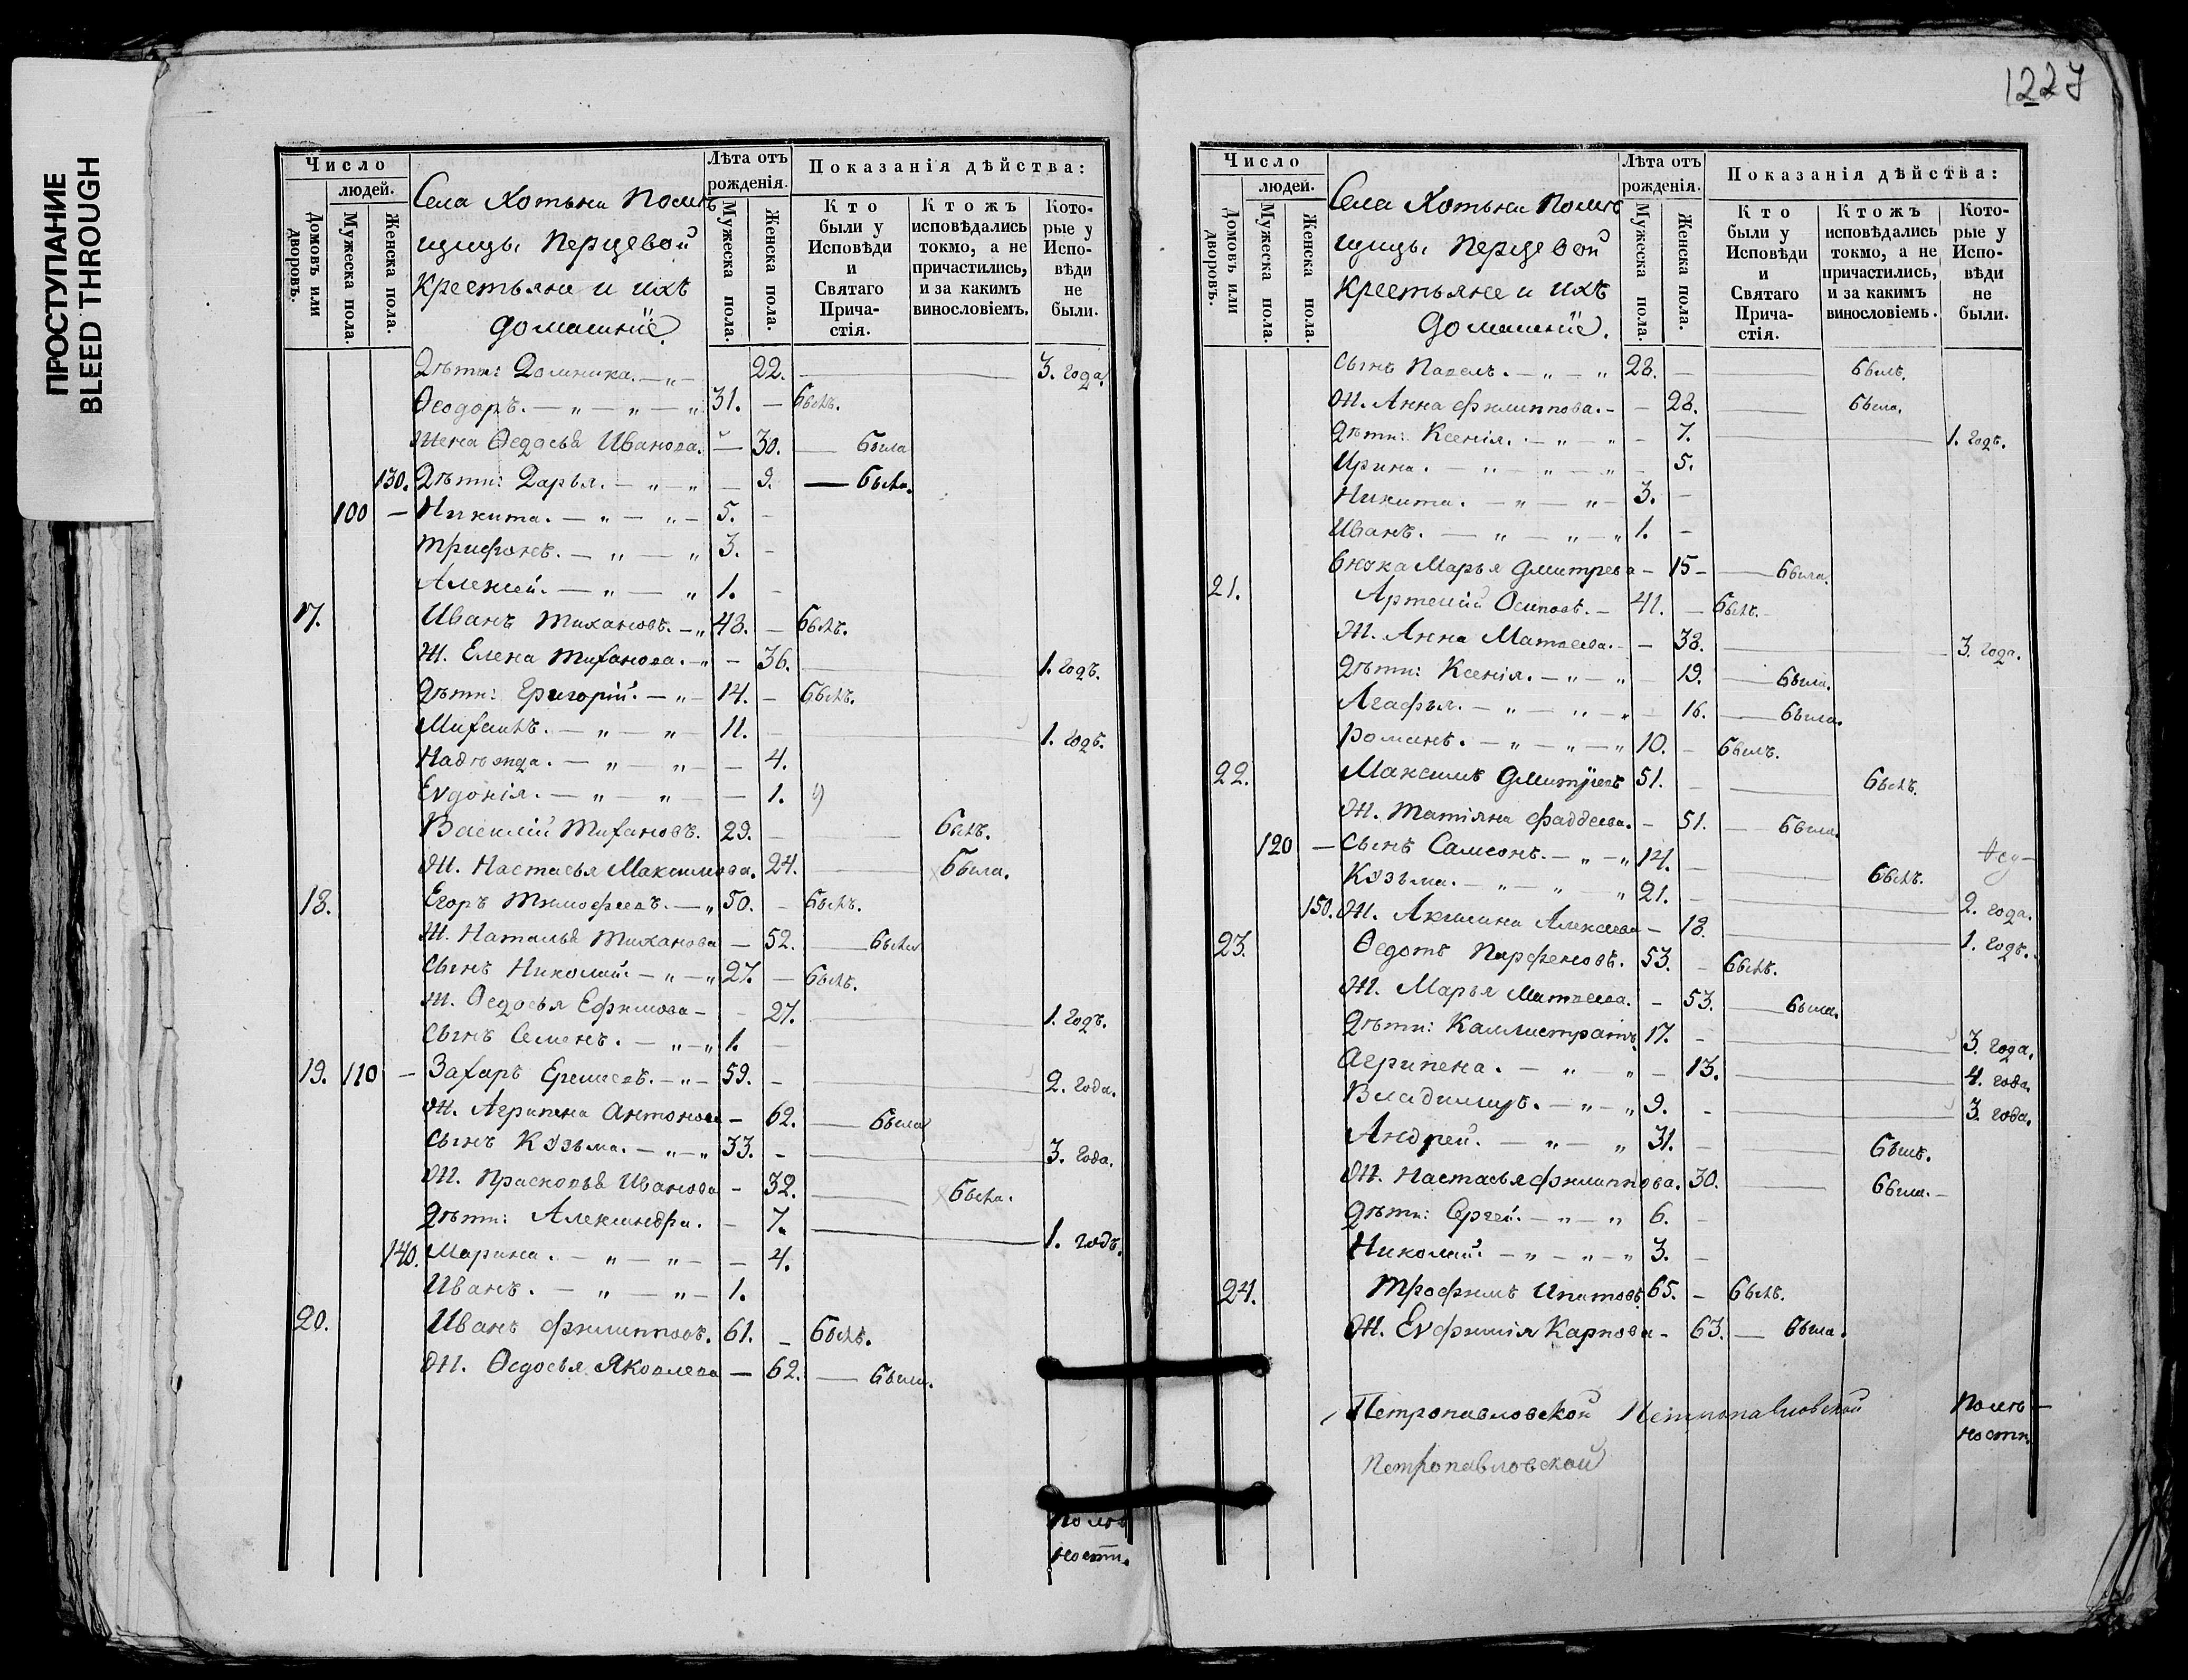 ПРОСТУПАНИЕ
BLEED THROUGH
1227
Число
людей.
Домовъ или дворовъ.
Мужеска пола.
Женска пола.
Села Хотьни Помѣ
щицы Перцевой
Крестьяне и ихъ
домашніе.
Лѣта отъ рожденія.
Мужеска пола.
Женска пола.
Показанія дѣйства:
Кто были у Исповѣди и Святаго Прича- стія.
Ктожъ исповѣдались токмо, а не причастились, и за какимъ винословіемъ.
Кото- рые у Испо- вѣди не были.
Дѣти: Домника. — „ 22. 3. года.
Ѳеодоръ. — „ — „ — „ 31. — былъ.
Жена Ѳедосья Иванова. — 30. — была
130. Дѣти: Дарья. — „ — „ — 9. — была.
100 — Никита. — „ — „ — 5. —
Трифонъ. — „ — „ 3. —
Алексей. — „ — „ 1. —
17. Иванъ Тихановъ. — „ 48. — былъ.
Ж. Елена Тифанова. — „ — 36. 1. годъ.
Дѣти: Григорій. — „ — 14. — былъ.
Михаилъ. — „ — „ — 11. — 1. годъ.
Надѣжда. — „ — „ — — 4.
Еѵдокія. — „ — „ — — 1.
Василій Тифановъ. 29. — былъ.
Ж. Настасья Максимова. 24. была.
18. Егоръ Тимофеевъ. — „ 50. — былъ.
Ж. Наталья Тиханова — 52. — была
Сынъ Николай. — „ — „ 27. — былъ.
Ж. Ѳедосья Ефимова — — 27. 1. годъ.
Сынъ Семенъ. — „ — „ 1. —
19. 110 — Захаръ Еремеевъ. — „ — 59. — 2. года.
Ж. Агрипена Антонова — 62. — была
Сынъ Кузьма. — „ — „ 33. — 3. года.
Ж. Прасковья Иванова — 32. была.
Дѣти: Александра. — 7. 1. годъ.
140. Марина. — „ — „ — — 4.
Иванъ. — „ — „ — 1.
20. Иванъ Филипповъ. 61. — былъ.
Ж. Ѳедосья Яковлева — 62. — была.
Помѣ
ности.
Число
людей.
Домовъ или дворовъ.
Мужеска пола.
Женска пола.
Села Хотьни Помѣ
щицы Перцевой
Крестьяне и ихъ
домашніе.
Лѣта отъ рожденія.
Мужеска пола.
Женска пола.
Показанія дѣйства:
Кто были у Исповѣди и Святаго Прича- стія.
Ктожъ исповѣдались токмо, а не причастились, и за какимъ винословіемъ.
Кото- рые у Испо- вѣди не были.
Сынъ Павелъ. — „ — „ 28. — былъ.
Ж. Анна Филиппова. — — 28. была.
Дѣти: Ксенія. — „ — „ — 7. 1. годъ.
Ирина. — „ — „ — „ — 5.
Никита. — „ — „ — 3. —
Иванъ. — „ — „ — „ 1. —
Внока Марья Дмитрева — 15 — была.
21. Артемій Осиповъ. — 41. — былъ.
Ж. Анна Матвеева. — — 38. 3. года.
Дѣти: Ксенія. — „ — „ — 19. — была.
Агафья. — „ — „ — „ — 16. — была.
Романъ. — „ — „ — „ 10. — былъ.
22. Максимъ Дмитріевъ 51. — былъ.
Ж. Татіяна Фаддеева. — 51. — была.
120 — Сынъ Самсонъ. — „ — „ 14. — былъ.
Кузьма. — „ — „ — „ 21. — 2. года.
150. Ж. Акилина Алексеева — 18. 1. годъ.
23. Ѳедотъ Парфеновъ. 53. — былъ.
Ж. Марья Матвеева. — 53. — была.
Дѣти: Каллистратъ. 17. — 3. года.
Агрипена. — „ — „ — 13. 4. года.
Владимиръ. — „ — „ 9. — 3. года.
Андрей. — „ — „ 31. — былъ.
Ж. Настасья Филиппова. 30. была. —
Дѣти: Сергей. — „ — „ 6. —
Николай. — „ — „ — „ 3. —
24. Трофимъ Ипатовъ. 65. — былъ.
Ж. Еѵфимія Карпова — 63. — была.
Петропавловской Петропавловской
Петропавловской
Помѣ —
ности.